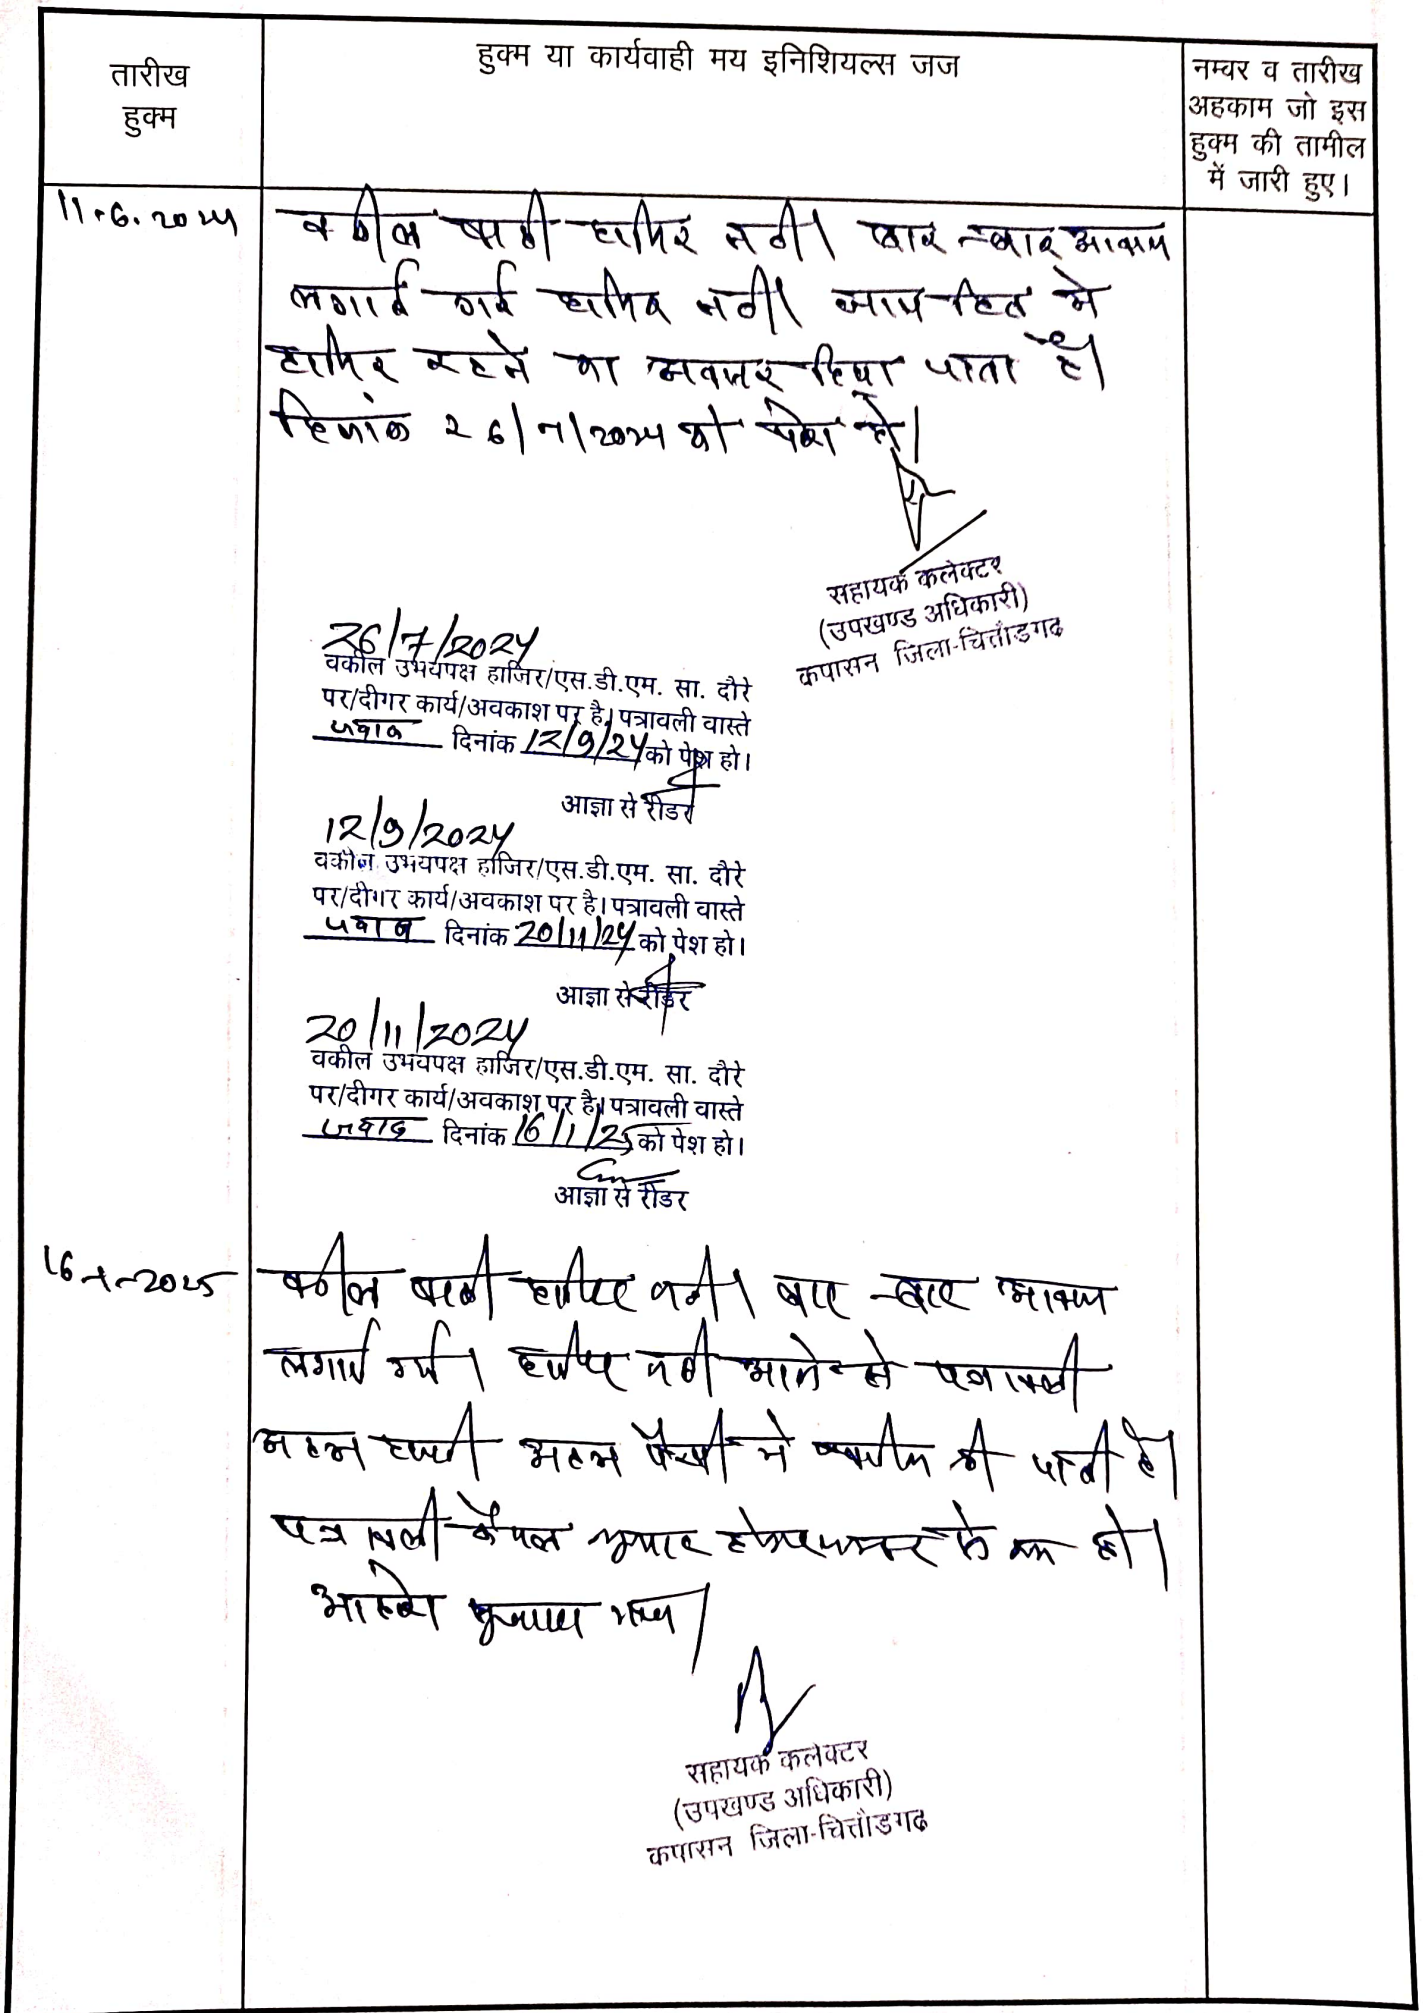 तारीख
हुक्म
हुक्म या कार्यवाही मय इनिशियल्स जज
नम्वर व तारीख
अहकाम जो इस
हुक्म की तामील
में जारी हुए।
11-6-2024
वकील वादी हाजिर नही। बार-बार आवाज
लगाई गई हाजिर नही। न्याय हित मे
हाजिर रहने का अवसर दिया जाता है।
दिनांक 26/7/2024 को पेश हो।
सहायक कलेक्टर
(उपखण्ड अधिकारी)
कपासन जिला-चित्तौडगढ
26/7/2024
वकील उभयपक्ष हाजिर/एस.डी.एम. सा. दौरे
पर/दीगर कार्य/अवकाश पर है। पत्रावली वास्ते
जवाब दिनांक 12/9/24 को पेश हो।
आज्ञा से रीडर
12/9/2024
वकील उभयपक्ष हाजिर/एस.डी.एम. सा. दौरे
पर/दीगर कार्य/अवकाश पर है। पत्रावली वास्ते
जवाब दिनांक 20/11/24 को पेश हो।
आज्ञा से रीडर
20/11/2024
वकील उभयपक्ष हाजिर/एस.डी.एम. सा. दौरे
पर/दीगर कार्य/अवकाश पर है। पत्रावली वास्ते
जवाब दिनांक 16/1/25 को पेश हो।
आज्ञा से रीडर
16-1-2025
वकील वादी हाजिर नही। बार-बार आवाज
लगाई गई। हाजिर नही आने से पत्रावली
अदम हाजरी अदम पैरवी मे खारीज की जाती है।
पत्रावली फैसल शुमार होकर नम्बर से कम हो।
आदेश सुनाया गया।
सहायक कलेक्टर
(उपखण्ड अधिकारी)
कपासन जिला-चित्तौडगढ